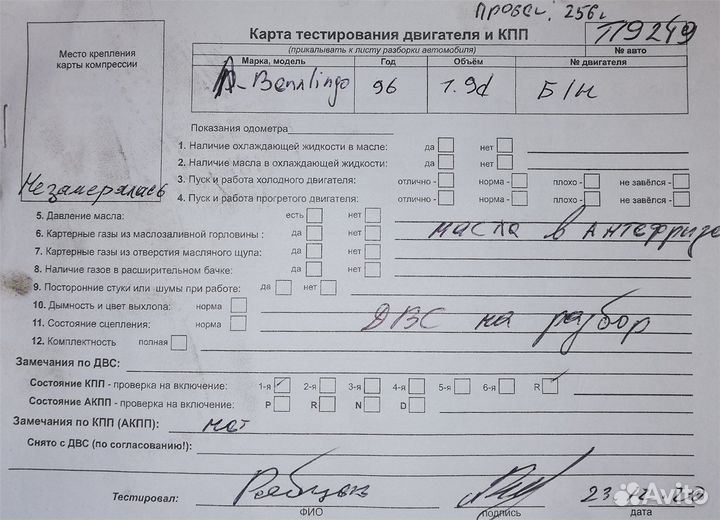 256г
Карта тестирования двигателя и КПП
П9249
(прикалывать к листу разборки автомобиля)
№ авто
Место крепления
карты компрессии
Марка, модель Год Объём № двигателя
Berlingo 96 1.9d Б/Н
Показания одометра
1. Наличие охлаждающей жидкости в масле: да нет
2. Наличие масла в охлаждающей жидкости: да нет
3. Пуск и работа холодного двигателя: отлично - норма - плохо - не завёлся -
Незамерялась
4. Пуск и работа прогретого двигателя: отлично - норма - плохо - не завёлся -
5. Давление масла: есть нет
6. Картерные газы из маслозаливной горловины : да нет
масла в антефризе
7. Картерные газы из отверстия масляного щупа: да нет
8. Наличие газов в расширительном бачке: да нет
9. Посторонние стуки или шумы при работе: да нет
10. Дымность и цвет выхлопа: норма
11. Состояние сцепления: норма
ДВС на разбор
12. Комплектность полная
Замечания по ДВС:
Состояние КПП - проверка на включение: 1-я 2-я 3-я 4-я 5-я 6-я R
Состояние АКПП - проверка на включение: P R N D
Замечания по КПП (АКПП): мст
Снято с ДВС (по согласованию!):
Тестировал:
23
ФИО подпись дата
Avito